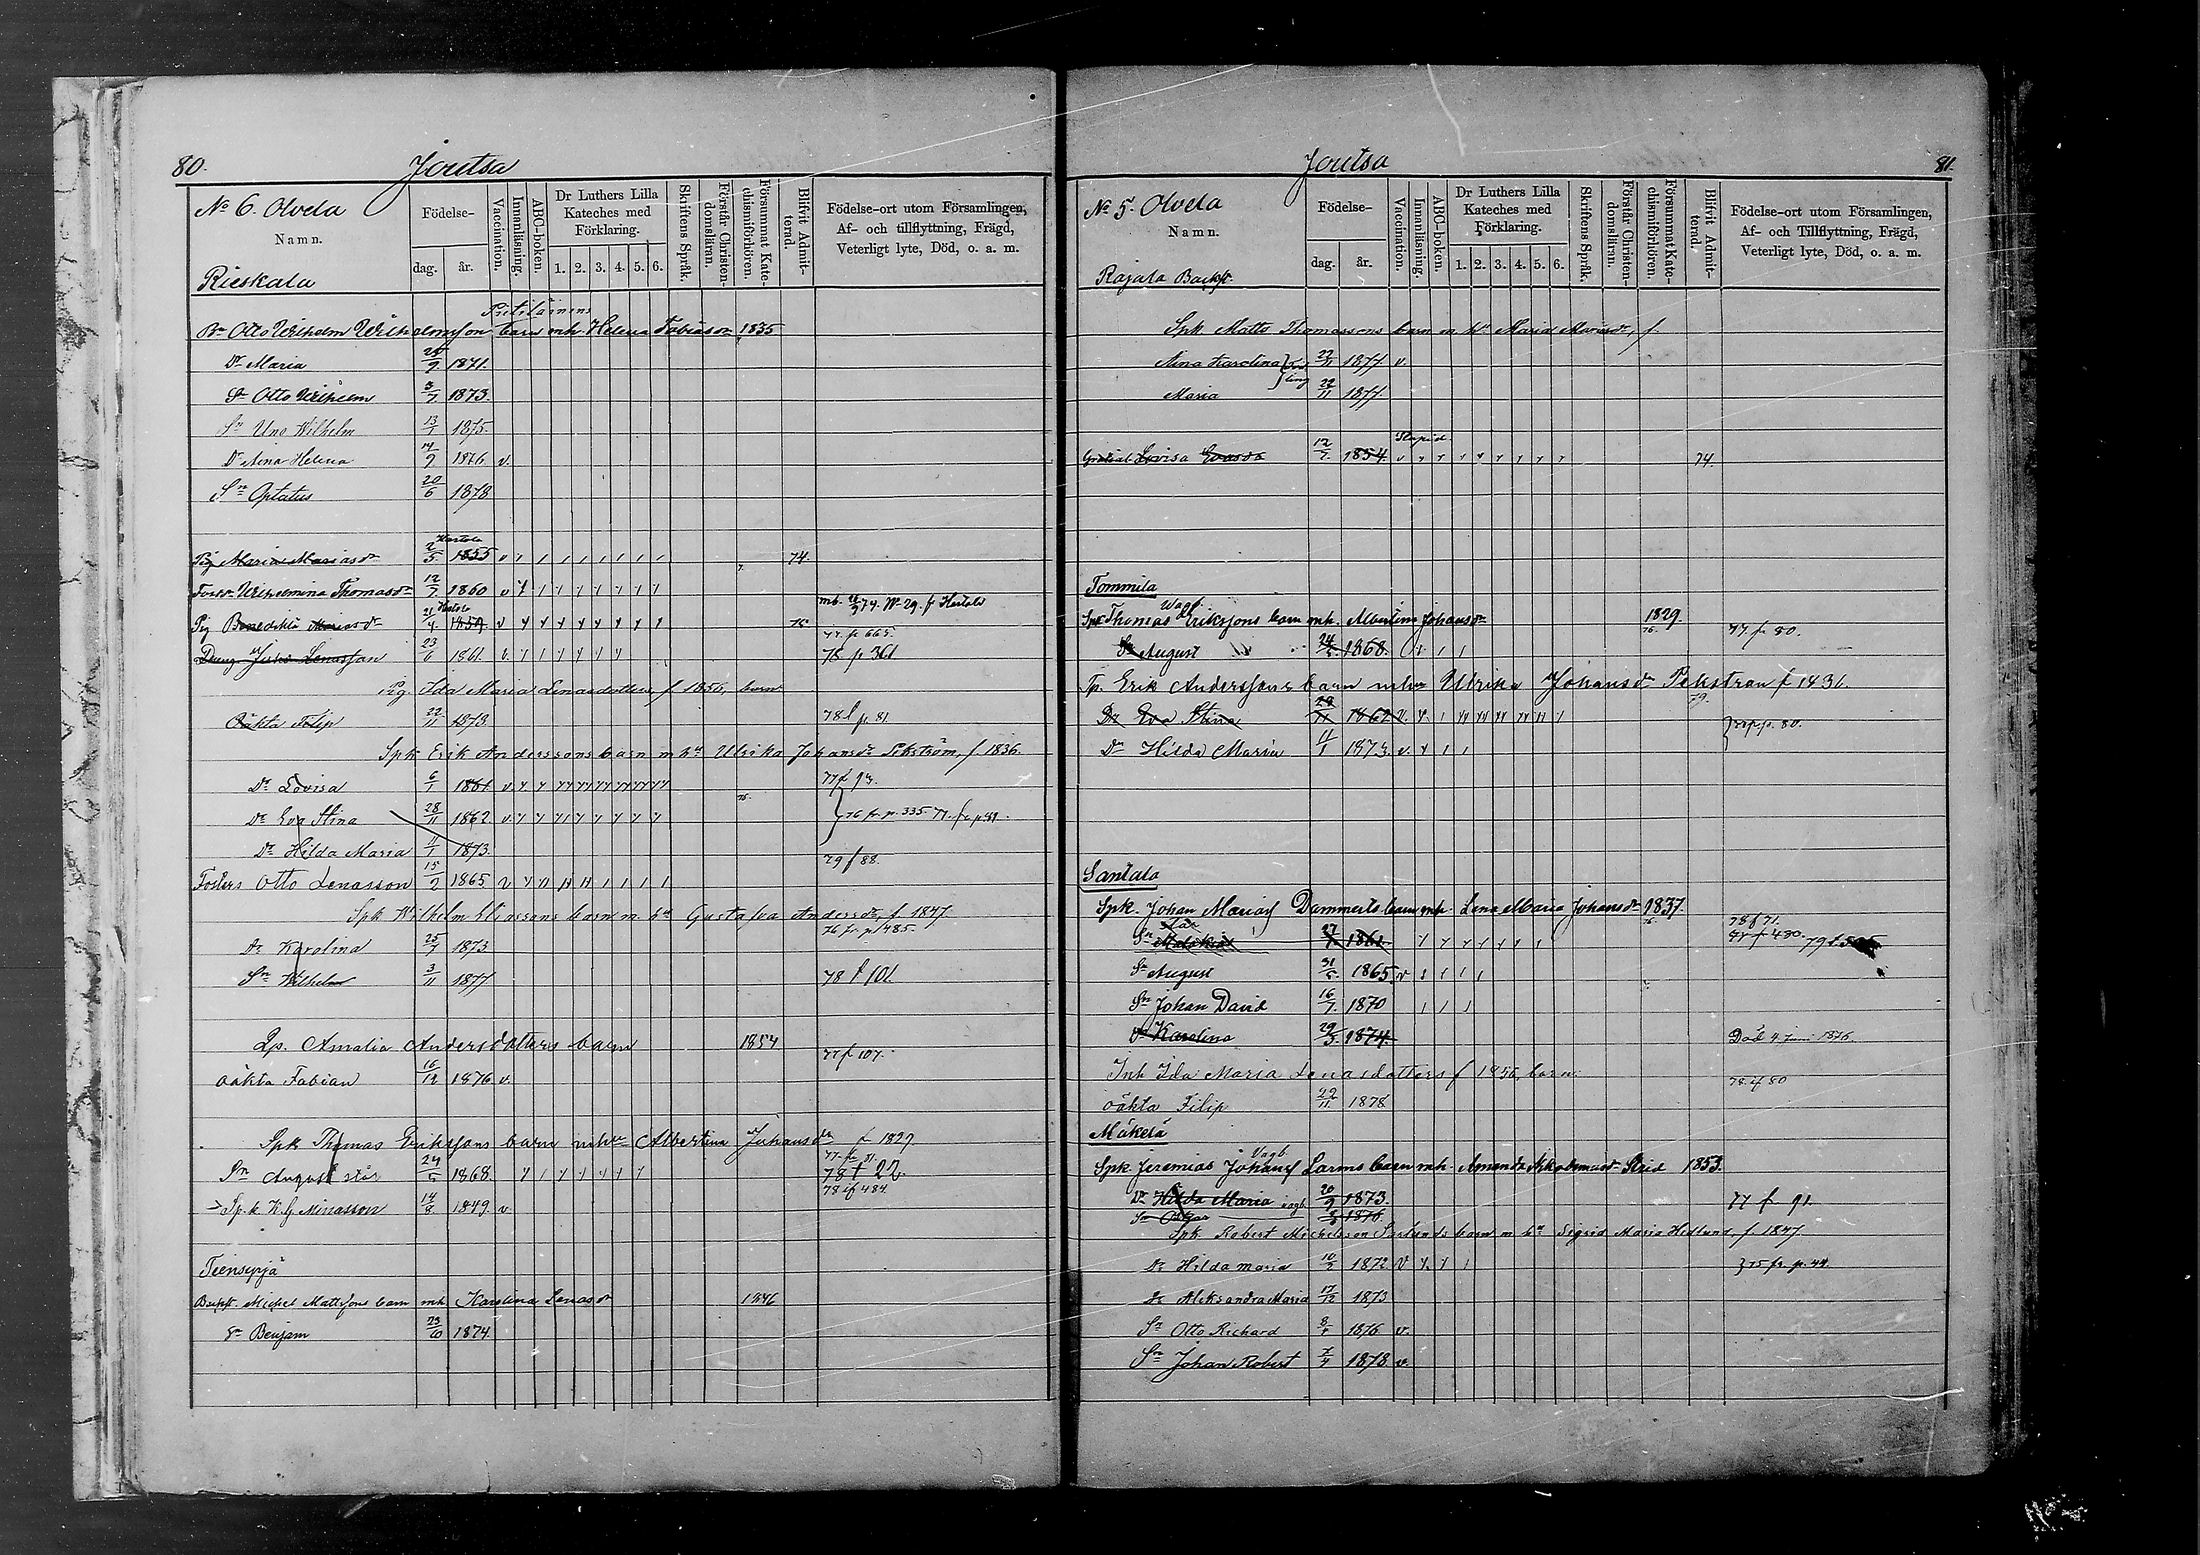 80.
Joutsa
No 6. Olvela
Namn.
Rieskala
Födelse-
dag. år.
Vaccination.
Innanläsning.
ABC-boken.
Dr Luthers Lilla Kateches med Förklaring.
1. 2. 3. 4. 5. 6.
Skriftens Språk.
Förstår Christendomsläran.
Försummat Katechismiförhören.
Blifvit Admitterad.
Födelse-ort utom Församlingen, Af- och tillflyttning, Frägd, Veterligt lyte, Död, o. a. m.
Bn Otto Wilhelm Wilhelmsson barn mh. Helena Tobiasdr 1835
Dr Maria 25/9 1871.
Sn Otto Wilhelm 3/7 1873.
Sn Uno Wilhelm 13/1 1875.
Dr Aina Helena 14/9 1876 v.
Sn Optatus 20/6 1878
Hartola
Pig Maria Mariasdr 2/5. 1855 74.
Fostr. Wilhelmina Thomasdr 12/7 1860
mb. 74. No 29. f Hartola
Hartola
Pig Benedikta Mariasdr 21/4. 1859 75
77. fr 665.
Dreng Johan Lenasson 23/6 1861. 78 p 361
Pig. Ida Maria Lenasdotters, f 1856, barn
Oäkta Filip 22/11 1873. 78 f p. 81
Spk Erik Anderssons barn m hu Ulrika Johansdr Pekström, f. 1836.
Dr Lovisa 6/1 1861 77 f 93.
Dr Eva Stina 28/11 1862 76 fr. p. 335 77. fr p 81.
Dr Hilda Maria 11/1 1873.
79 f 88.
Fosters Otto Lenasson 15/9 1865
Spk Wilhelm Eliassons barn m. hu Gustafva Andersdr, f. 1847.
76 fr. p 485.
Dr Karolina 25/7 1873
Sn Wilhelm 3/11 1877 78 f 101.
Lp. Amalia Andersdotters barn 1854
77 f 107.
Oäkta Fabian 16/12 1876 v.
Spk Thomas Erikssons barn mhu Albertina Johansdr f 1829
77 fr 81.
Sn August stör 24/5 1868. 78 f 22
78 if 484
Sp.k K.G Minasson 14/8 1849. v
Teensyrjä
Backst. Mickel Mattssons barn mh. Karolina Lenasdr 1846
Sn Benjam 23/10 1874
81.
Joutsa
No 5. Olvela
Namn.
Rajala Backst.
Födelse-
dag. år.
Vaccination.
Innanläsning.
ABC-boken.
Dr Luthers Lilla Kateches med Förklaring.
1. 2. 3. 4. 5. 6.
Skriftens Språk.
Förstår Christendomsläran.
Försummat Katechismiförhören.
Blifvit Admitterad.
Födelse-ort utom Församlingen, Af- och Tillflyttning, Frägd, Veterligt lyte, Död, o. a. m.
Spk Matts Thomassons barn m hu Maria Mariasdr, f.
Aina Karolina 22/11 1877. v.
Maria 22/11 1877.
Stupid
Lovisa Evasdr 12/7. 1854. 74.
Tommila
Vagf.
Spk Thomas Erikssons barn mh. Albertina Johansdr 1829.
76.
77. f 80.
Sn August 24/5. 1868.
Tp. Erik Anderssons barn mhu Ulrika Johansdr Pekström f 1431.
79.
Dr Eva Stina 28/11 1862 v. p. 80.
Dr Hilda Maria 11/1 1873. v.
Santala
Spk. Johan Mariass Dammerts barn mh. Lena Maria Johansdr 1837.
76.
78 f 71.
Sn 27/7. 1862. 77 f 480. 79 f 505
Sn August 31/5. 1865. v
Sn Johan David 16/7. 1870
Dr Karolina 29/3. 1874. Död 4 juni 1876
Inh Ida Maria Lenasdotters f 1856, barn
78 if 80
oäkta Filip 22/11 1878
Mäkelä
Vagb
Spk. Jeremias Johanss Larms barn mh. Amanda Strid 1853.
Dr Hilda Maria 20/9 1873. 77 f 91.
Sn Oskar 1876.
Spk. Robert Michelsson Sarlunds barn m hu Sigrid Maria Hedlund, f. 1847.
Dr Hilda Maria 10/2 1872 v 75 fr. p. 44.
Dr Aleksandra Maria 17/12 1873
Sn Otto Richard 8/1 1876 v.
Sn Johan Robert 7/4 1878 v.